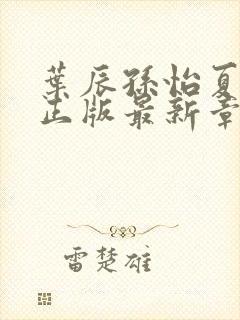 葉辰孫怡夏
正版最新章
雷楚雄